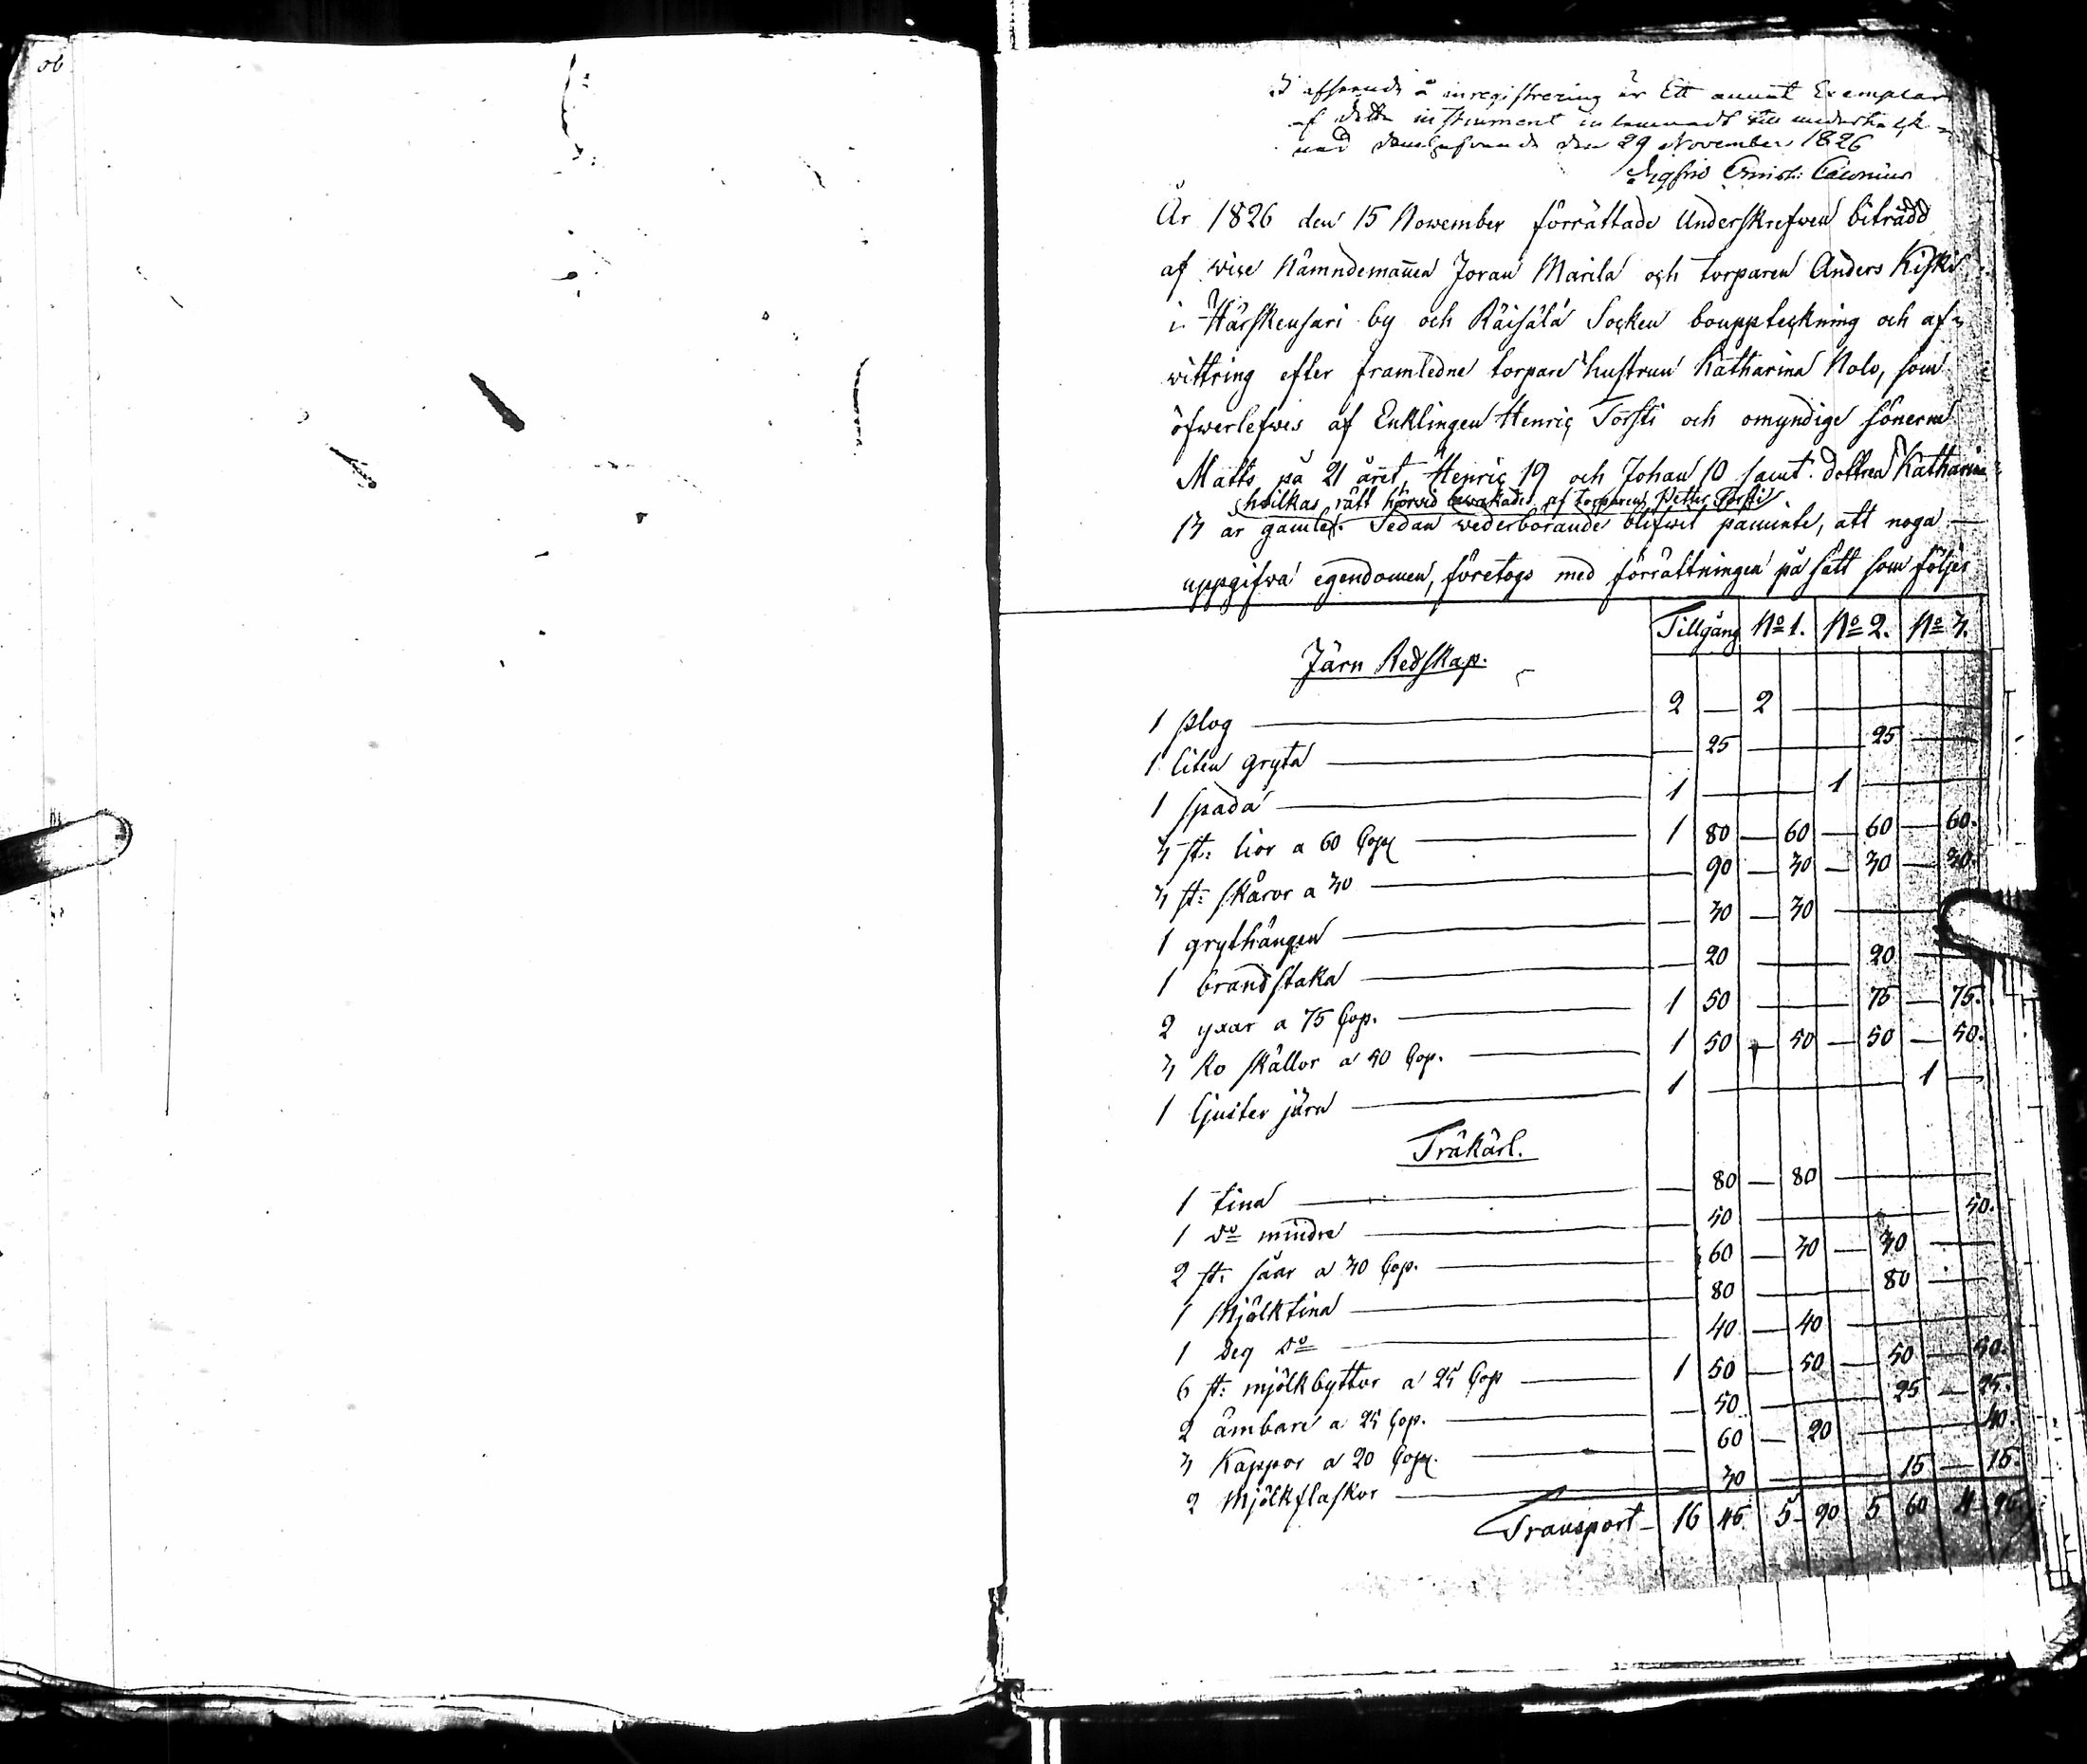 I afseende å inregistrering är Ett annat Exemplar
af detta instrument inlemnadt till
den 29 November 1826
År 1826 den 15 Nowember förrättade Underskrefwen biträdd
af wice Nämndemannen Joran Marila och torparen Anders Kiski
i Härskensari by och Räisälä Socken bouppteckning och af=
wittring efter framledne torpare hustrun Katharina Nolo, som
öfwerlefwes af Enklingen Henric Torsti och omyndige sönerne
Matts på 21 året, Henric 19 och Johan 10 samt dottren Katharina
hwilkas rätt härwid bewakades af torparen Petter Torsti
13 år gamle. Sedan wederbörande blifwit påminte, att noga
uppgifwa egendomen, företogs med förrättningen på sätt som följer
Tillgång No 1. No 2. No 3.
Järn Redskap.
1 plog — 2 — 2 —
1 liten gryta — 25 — 25 —
1 spada — 1 — 1 —
3 st: lior a 60 Cop — 1 80 — 60 — 60 — 60.
3 st: skäror a 30 — 90 — 30 — 30 — 30.
1 grythängen — 30 — 30 —
1 brandstaka — 20 — 20 —
2 yxar a 75 Cop. — 1 50 — 75 — 75.
3 ko skällor a 50 Cop. — 1 50 — 50 — 50 — 50.
1 ljuster järn — 1 — 1 —
Träkärl.
1 tina — 80 — 80 —
1 do mindre — 50 — 50.
2 st: såar a 30 Cop. — 60 — 30 — 30 —
1 Mjölktina — 80 — 80 —
1 Deg do — 40 — 40 —
6 st: mjölkbyttor a 25 Cop — 1 50 — 50 — 50 — 50.
2 ämbare a 25 Cop. — 50 — 25 — 25.
3 Kappor a 20 Cop. — 60 — 20 — 40
2 Mjölkflaskor — 30 — 15 — 15.
Transport — 16 45. 5 — 90 5 60 4 — 95.